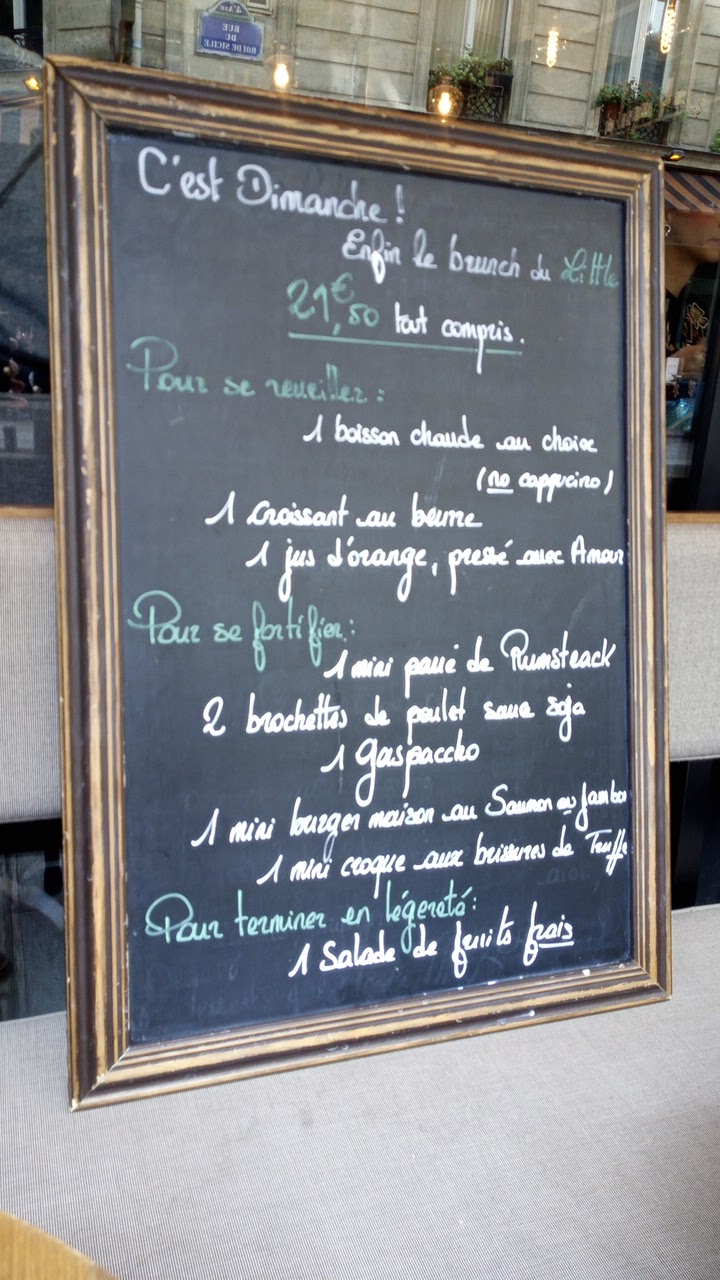 4e Arrt
RUE
DU
ROI DE SICILE
C'est Dimanche !
Enfin le brunch du Little
21€,50 tout compris.
Pour se reveiller :
1 boisson chaude au choix
(no cappucino)
1 croissant au beurre
1 jus d'orange, pressé avec Amour
Pour se fortifier :
1 mini pavé de Rumsteack
2 brochettes de poulet sauce soja
1 Gaspaccho
1 mini burger maison au Saumon ou Jambon
1 mini croque aux brisures de Truffe
Pour terminer en légereté :
1 Salade de fruits frais